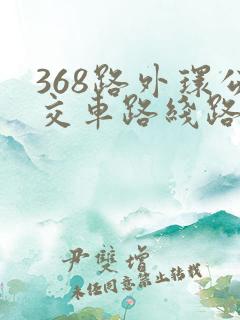 368路外环公
交车路线路
尹雙增
未经同意禁止转载